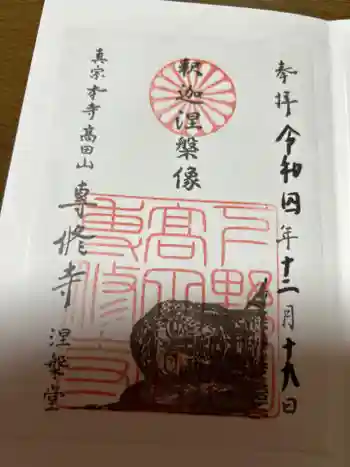 奉拝 令和四年十二月十八日
釈迦涅槃像
真宗本寺高田山専修寺 涅槃堂
下野
高田山
専修寺